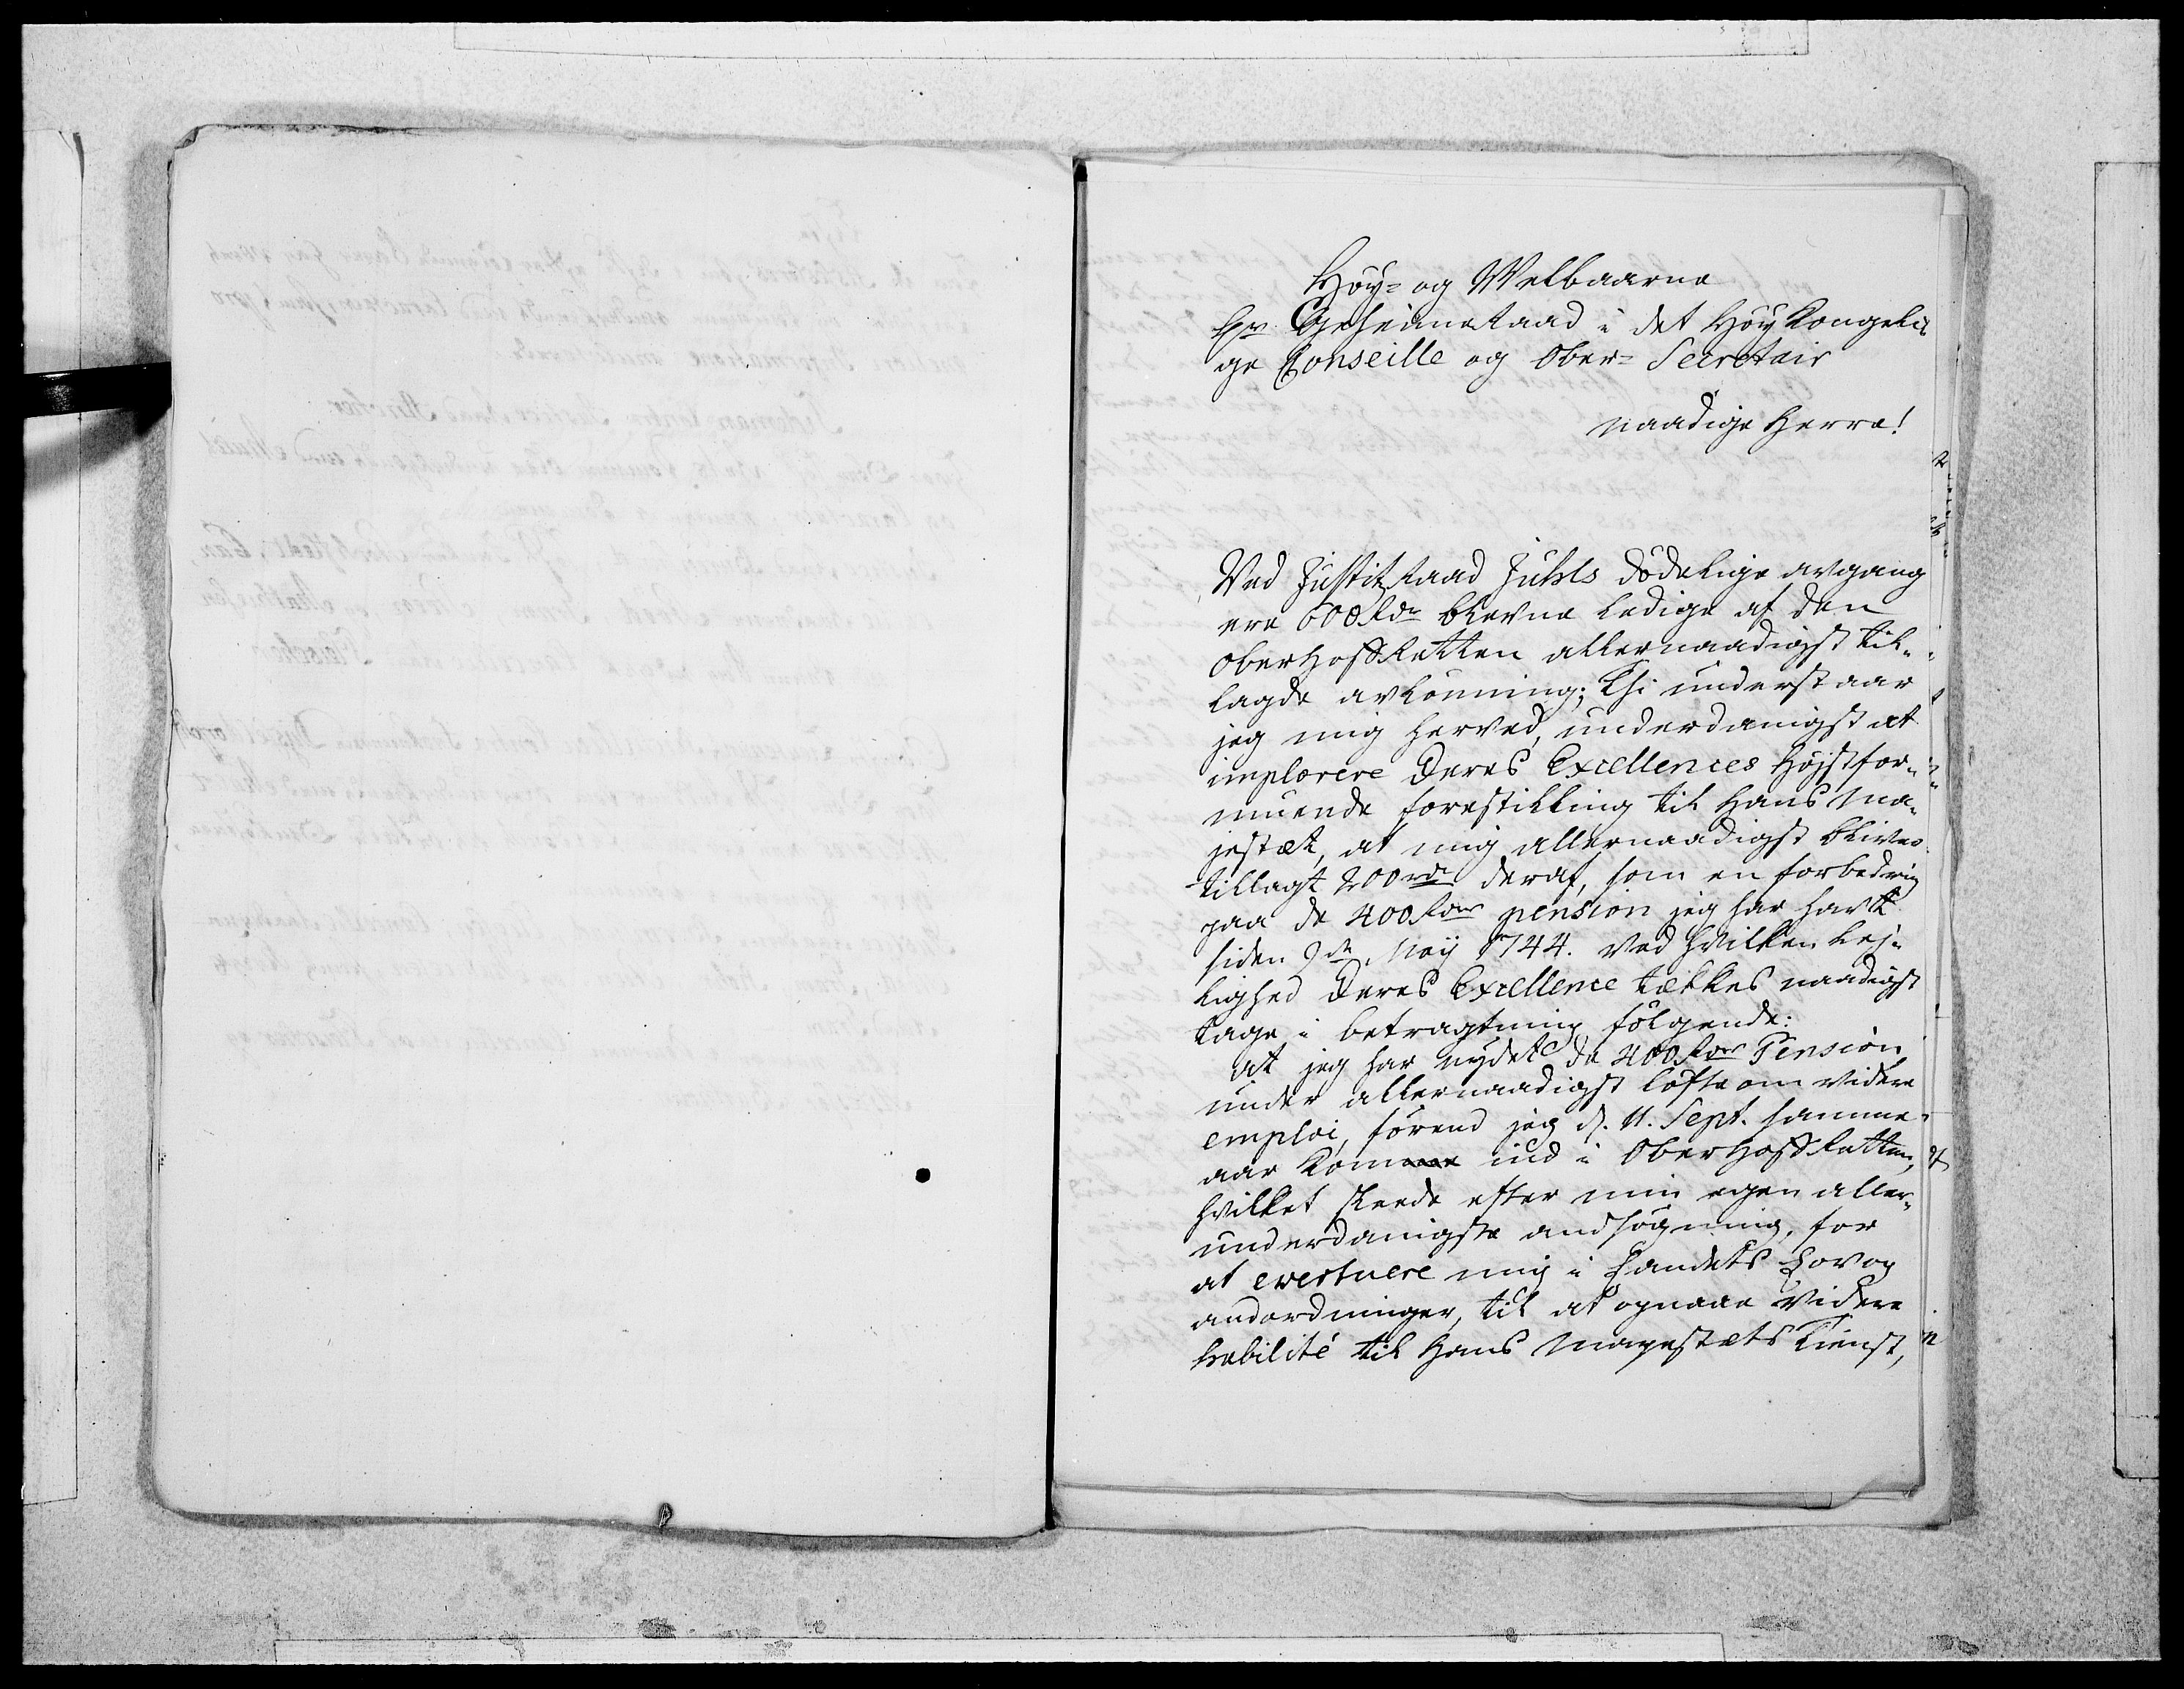 Høy- og Welbaarne
Hr. Geheime Raad i det Høy Kongeli
ge Conseille og Ober- Secretair
naadige Herre!
Ved Justitz Raad Juhls dødelige avgang
ere 600 Rdr blevne ledige af den
Oberhoff Retten allernaadigst til-
lagde avlønning; Thi understaar
jeg mig herved, underdanigst at
implorere Deres Excellences Højstfor-
muende forestilling til Hans Ma-
jestæt, at mig allernaadigst blives
tillagt 200 rdr deraf, som en forbedring
paa de 400 Rdr pension jeg har havt
siden 9de Maÿ 1744. ved hvilken lej-
lighed Deres Excellence tækkes naadigst
tage i betragtning følgende:
at jeg har nydet de 400 Rdr Pension
under allernaadigst løfte om videre
emploi, førend jeg d. 11. Sept. samme
aar kom ind i Oberhoff Retten,
hvilket skeede efter min egen aller-
underdanigste andsøgning, for
at evertuere mig i Landets Lov og
andordninger, til at opnaae videre
habilité til Hans Mayestæts Tienst,